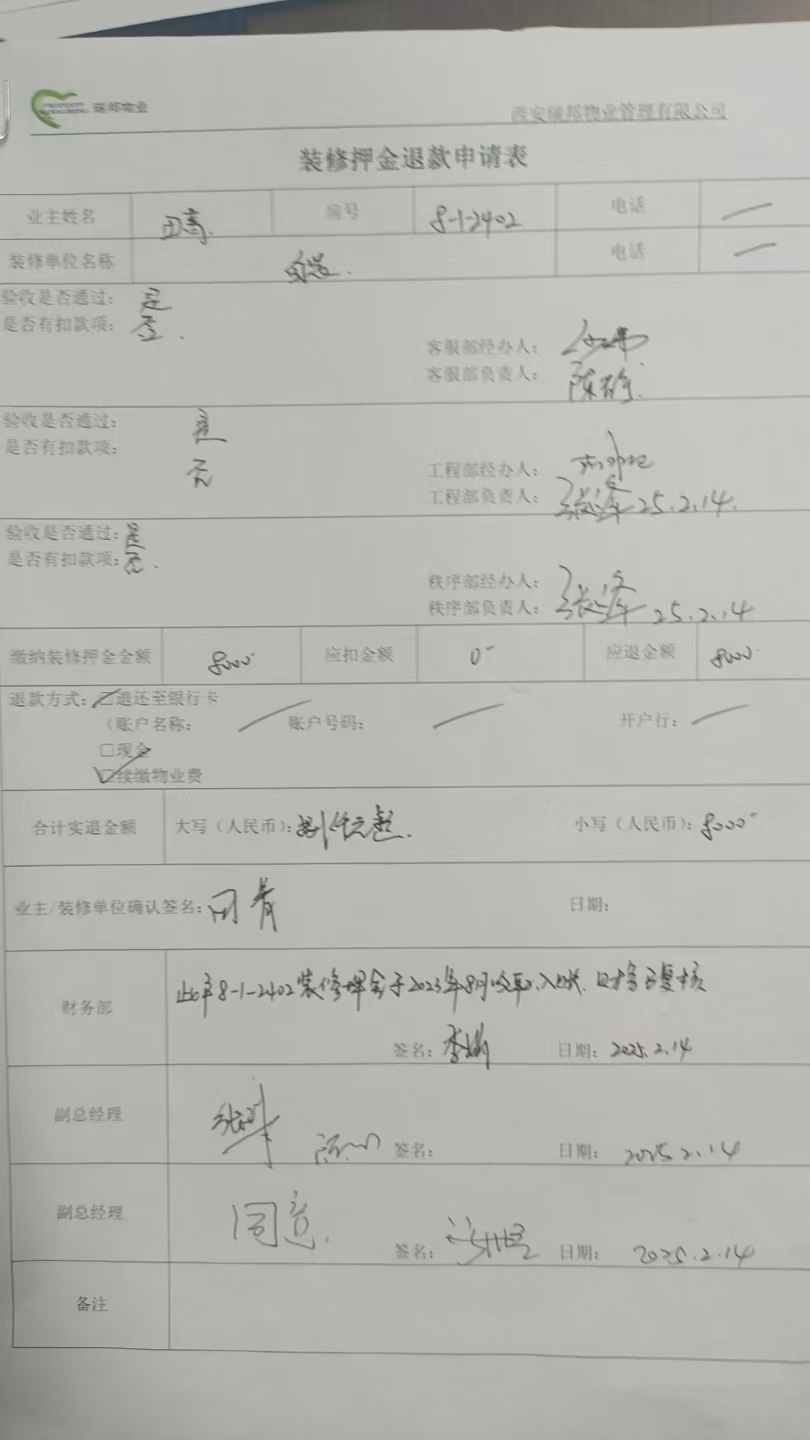 瑞邦物业 西安瑞邦物业管理有限公司
装修押金退款申请表
业主姓名 编号 8-1-2402 电话 /
装修单位名称 电话 /
验收是否通过: 是
是否有扣款项: 否.
客服部经办人:
客服部负责人: 陈
验收是否通过: 是
是否有扣款项: 否
工程部经办人:
工程部负责人: 张 25.2.14.
验收是否通过: 是
是否有扣款项: 否.
秩序部经办人:
秩序部负责人: 张 25.2.14
缴纳装修押金金额 8000 应扣金额 0 应退金额 8000
退款方式: ☑退还至银行卡
(账户名称: / 账户号码: / 开户行: /
□现金
☑续缴物业费
合计实退金额 大写(人民币): 捌仟元整. 小写(人民币): 8000
业主/装修单位确认签名: 日期:
财务部 此户8-1-2402装修押金于2023年8月收取,入账.
签名: 李 日期: 2025.2.14
副总经理 签名: 日期: 2025.2.14
副总经理 同意. 签名: 日期: 2025.2.14
备注